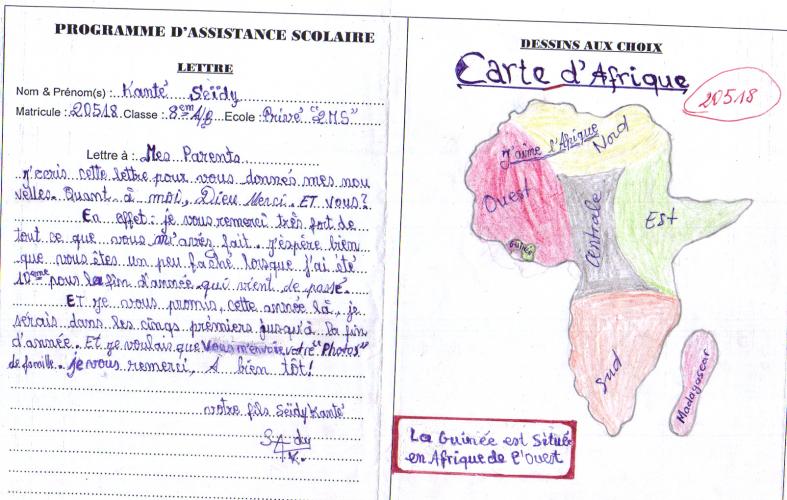 PROGRAMME D'ASSISTANCE SCOLAIRE
LETTRE
Nom & Prénom(s) : Kanté Seïdy
Matricule : 20518 Classe : 8em A/g Ecole : Privé "2MS"
Lettre à : Mes Parents
J'écris cette lettre pour vous donnés mes nou
velles. Quant à moi, Dieu Merci. ET Vous?
En effet : je vous remerci très fort de
tout ce que vous m'avrés fait. J'éspère bien
que vous êtes un peu faché lorsque j'ai été
10eme pour la fin d'année qui vient de passé.
ET Je vous promis, cette année là, je
serais dans les cinqs prémiers jusqu'à la fin
d'année. Et je voulais que vous m'envoie votre "Photos"
de famille. je vous remerci, A bien tôt!
votre fils Seïdy Kanté
DESSINS AUX CHOIX
Carte d'Afrique
20518
J'aime l'Afrique
Nord
Ouest
Centrale
Est
Guinée
Sud
Madagascar
La Guinée est Située
en Afrique de l'Ouest